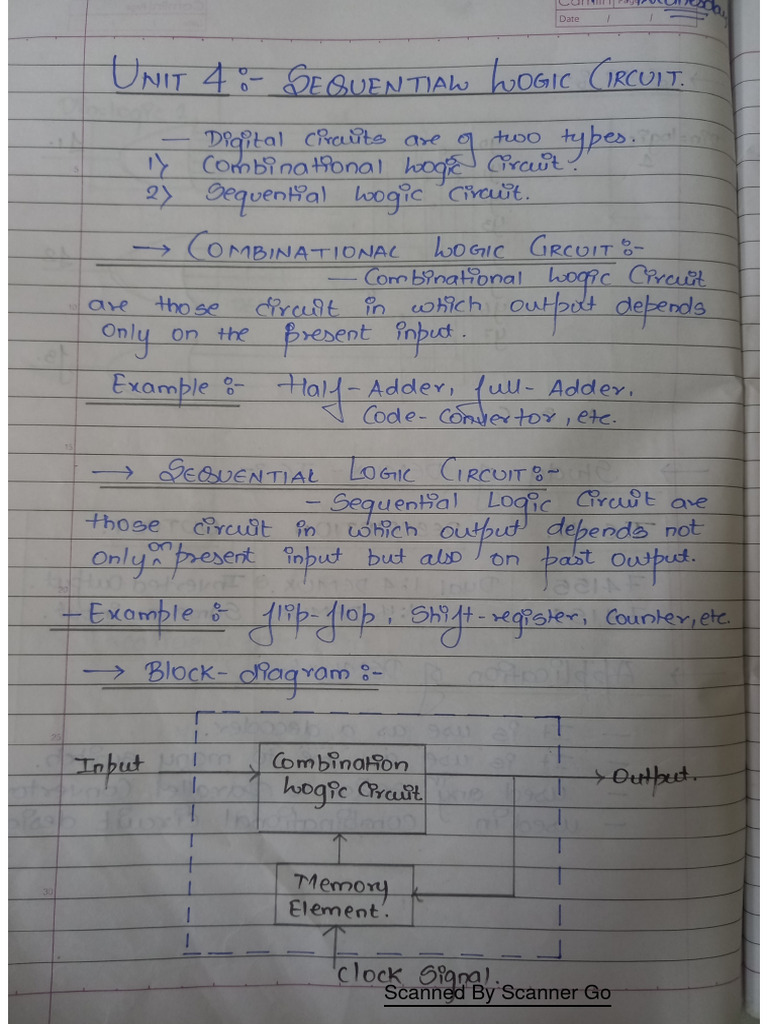 Wednesday
Date / /
UNIT 4 :- SEQUENTIAL LOGIC CIRCUIT.
— Digital circuits are of two types.
1) Combinational Logic Circuit.
2) Sequential Logic Circuit.
→ COMBINATIONAL LOGIC CIRCUIT :-
— Combinational Logic Circuit
are those circuit in which output depends
only on the present input.
Example :- Half-Adder, full-Adder,
Code-Convertor, etc.
→ SEQUENTIAL LOGIC CIRCUIT :-
- Sequential Logic Circuit are
those circuit in which output depends not
only on present input but also on past output.
- Example :- flip-flop, Shift-register, Counter, etc.
→ BLOCK-diagram :-
Input
Combination
Logic Circuit
Output.
Memory
Element.
Clock Signal.
Scanned By Scanner Go